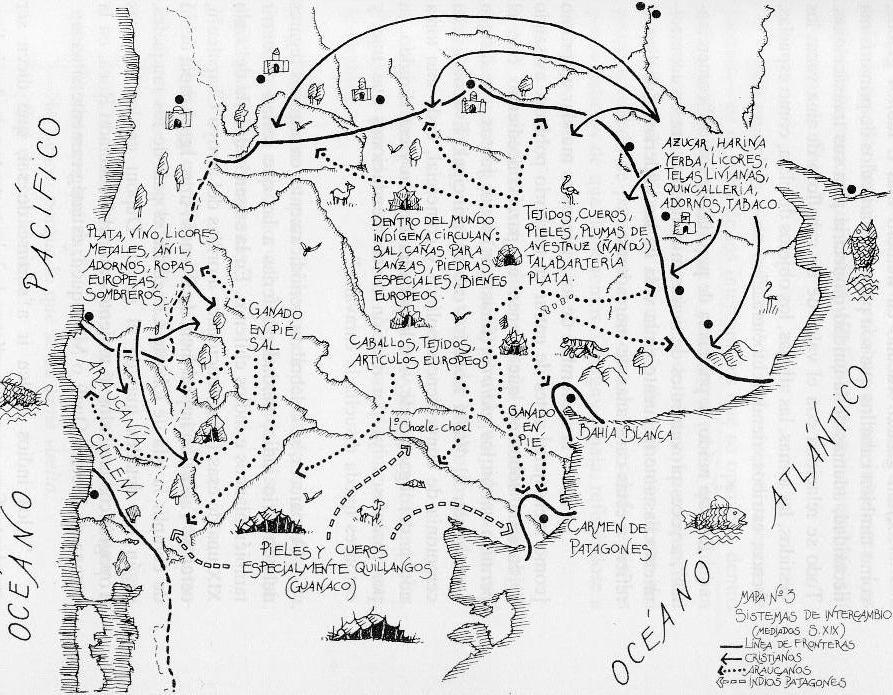 OCÉANO PACÍFICO
AZUCAR, HARINA
YERBA, LICORES,
TELAS LIVIANAS,
QUINCALLERIA,
ADORNOS, TABACO.
PLATA, VINO, LICORES
METALES, AÑIL,
ADORNOS, ROPAS
EUROPEAS,
SOMBREROS.
DENTRO DEL MUNDO
INDÍGENA CIRCULAN:
SAL, CAÑAS PARA
LANZAS, PIEDRAS
ESPECIALES, BIENES
EUROPEOS.
TEJIDOS, CUEROS,
PIELES, PLUMAS DE
AVESTRUZ (ÑANDÚ)
TALABARTERÍA
PLATA.
GANADO
EN PIÉ,
SAL
CABALLOS, TEJIDOS,
ARTÍCULOS EUROPEOS
ARAUCANÍA
CHILENA
Lº Choele-choel
GANADO
EN
PIE
BAHÍA BLANCA
CARMEN DE
PATAGONES
PIELES Y CUEROS
ESPECIALMENTE QUILLANGOS
(GUANACO)
OCÉANO ATLÁNTICO
MAPA Nº 3
SISTEMAS DE INTERCAMBIO
(MEDIADOS S. XIX)
LÍNEA DE FRONTERAS
CRISTIANOS
ARAUCANOS
INDIOS PATAGONES